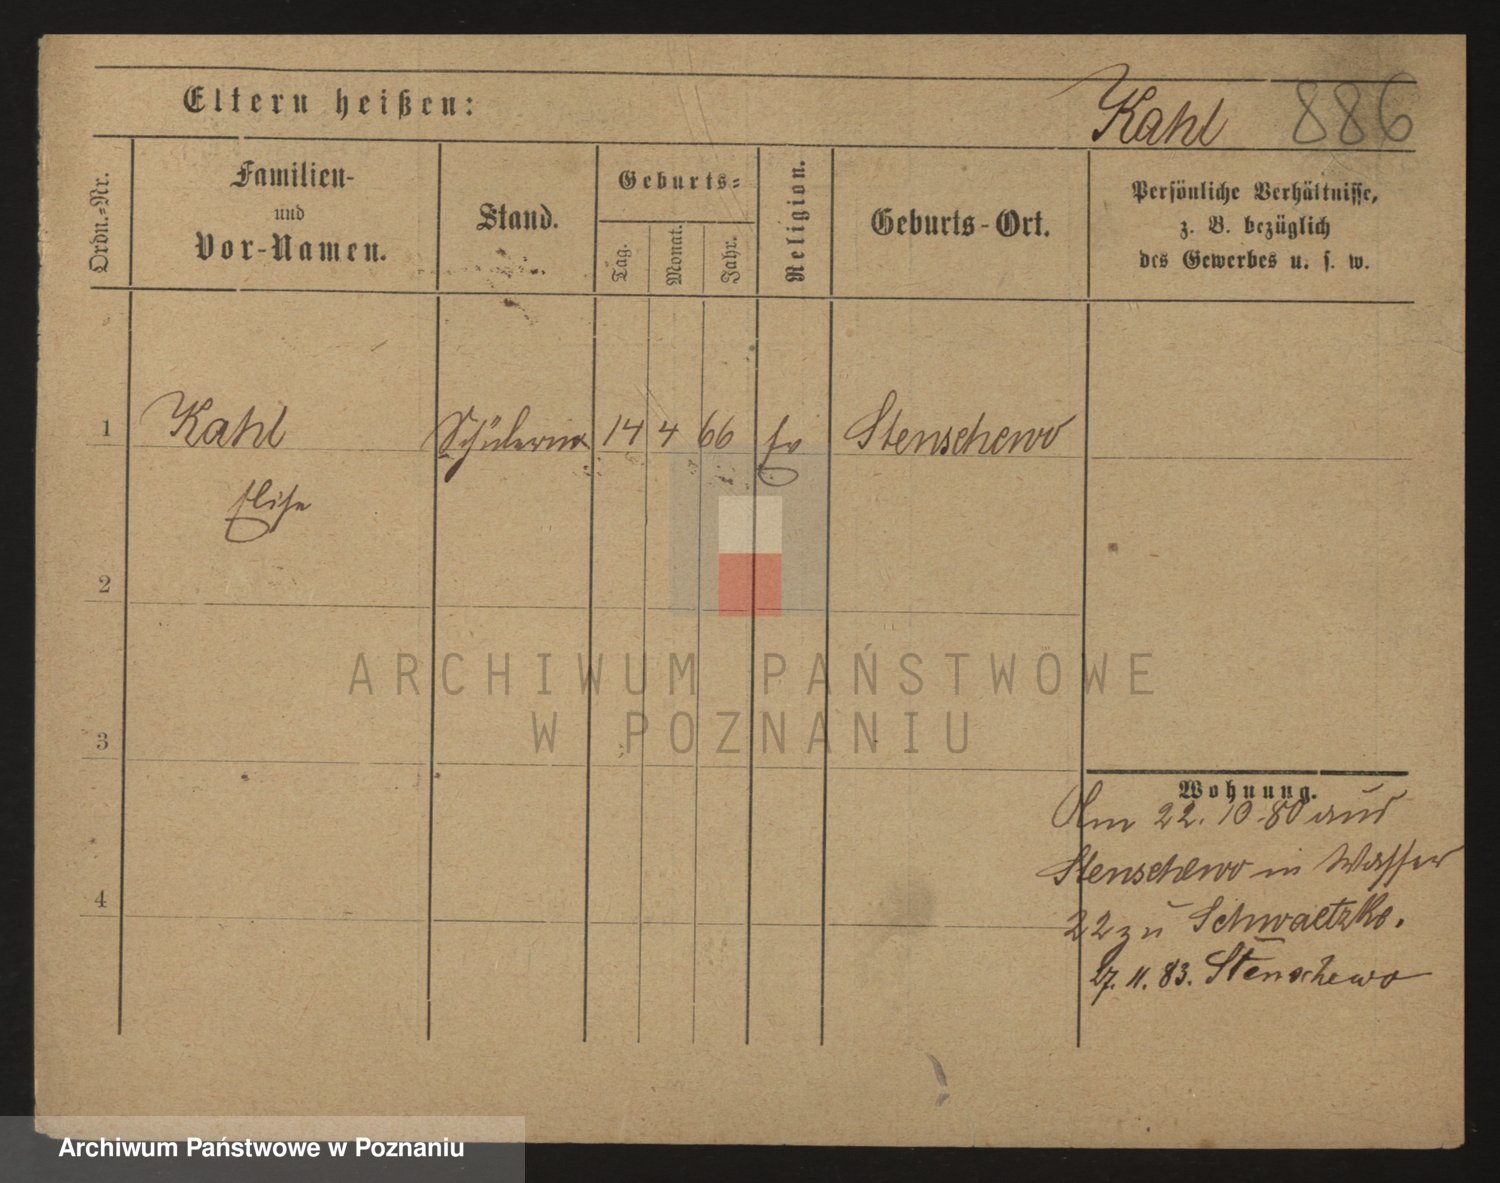 Eltern heißen:
Kahl 886
Ordn.=Nr.
Familien-
und
Vor-Namen.
Stand.
Geburts=
Tag.
Monat.
Jahr.
Religion.
Geburts-Ort.
Persönliche Verhältnisse,
z. B. bezüglich
des Gewerbes u. s. w.
1 Kahl Schülerin 14 4 66 Ev Stenschewo
Elise
2
3
4
Wohnung.
Am 22. 10 80 aus
Stenschewo in Wasser
22 zu
27. 11. 83. Stenschewo
ARCHIWUM PAŃSTWOWE
W POZNANIU
Archiwum Państwowe w Poznaniu